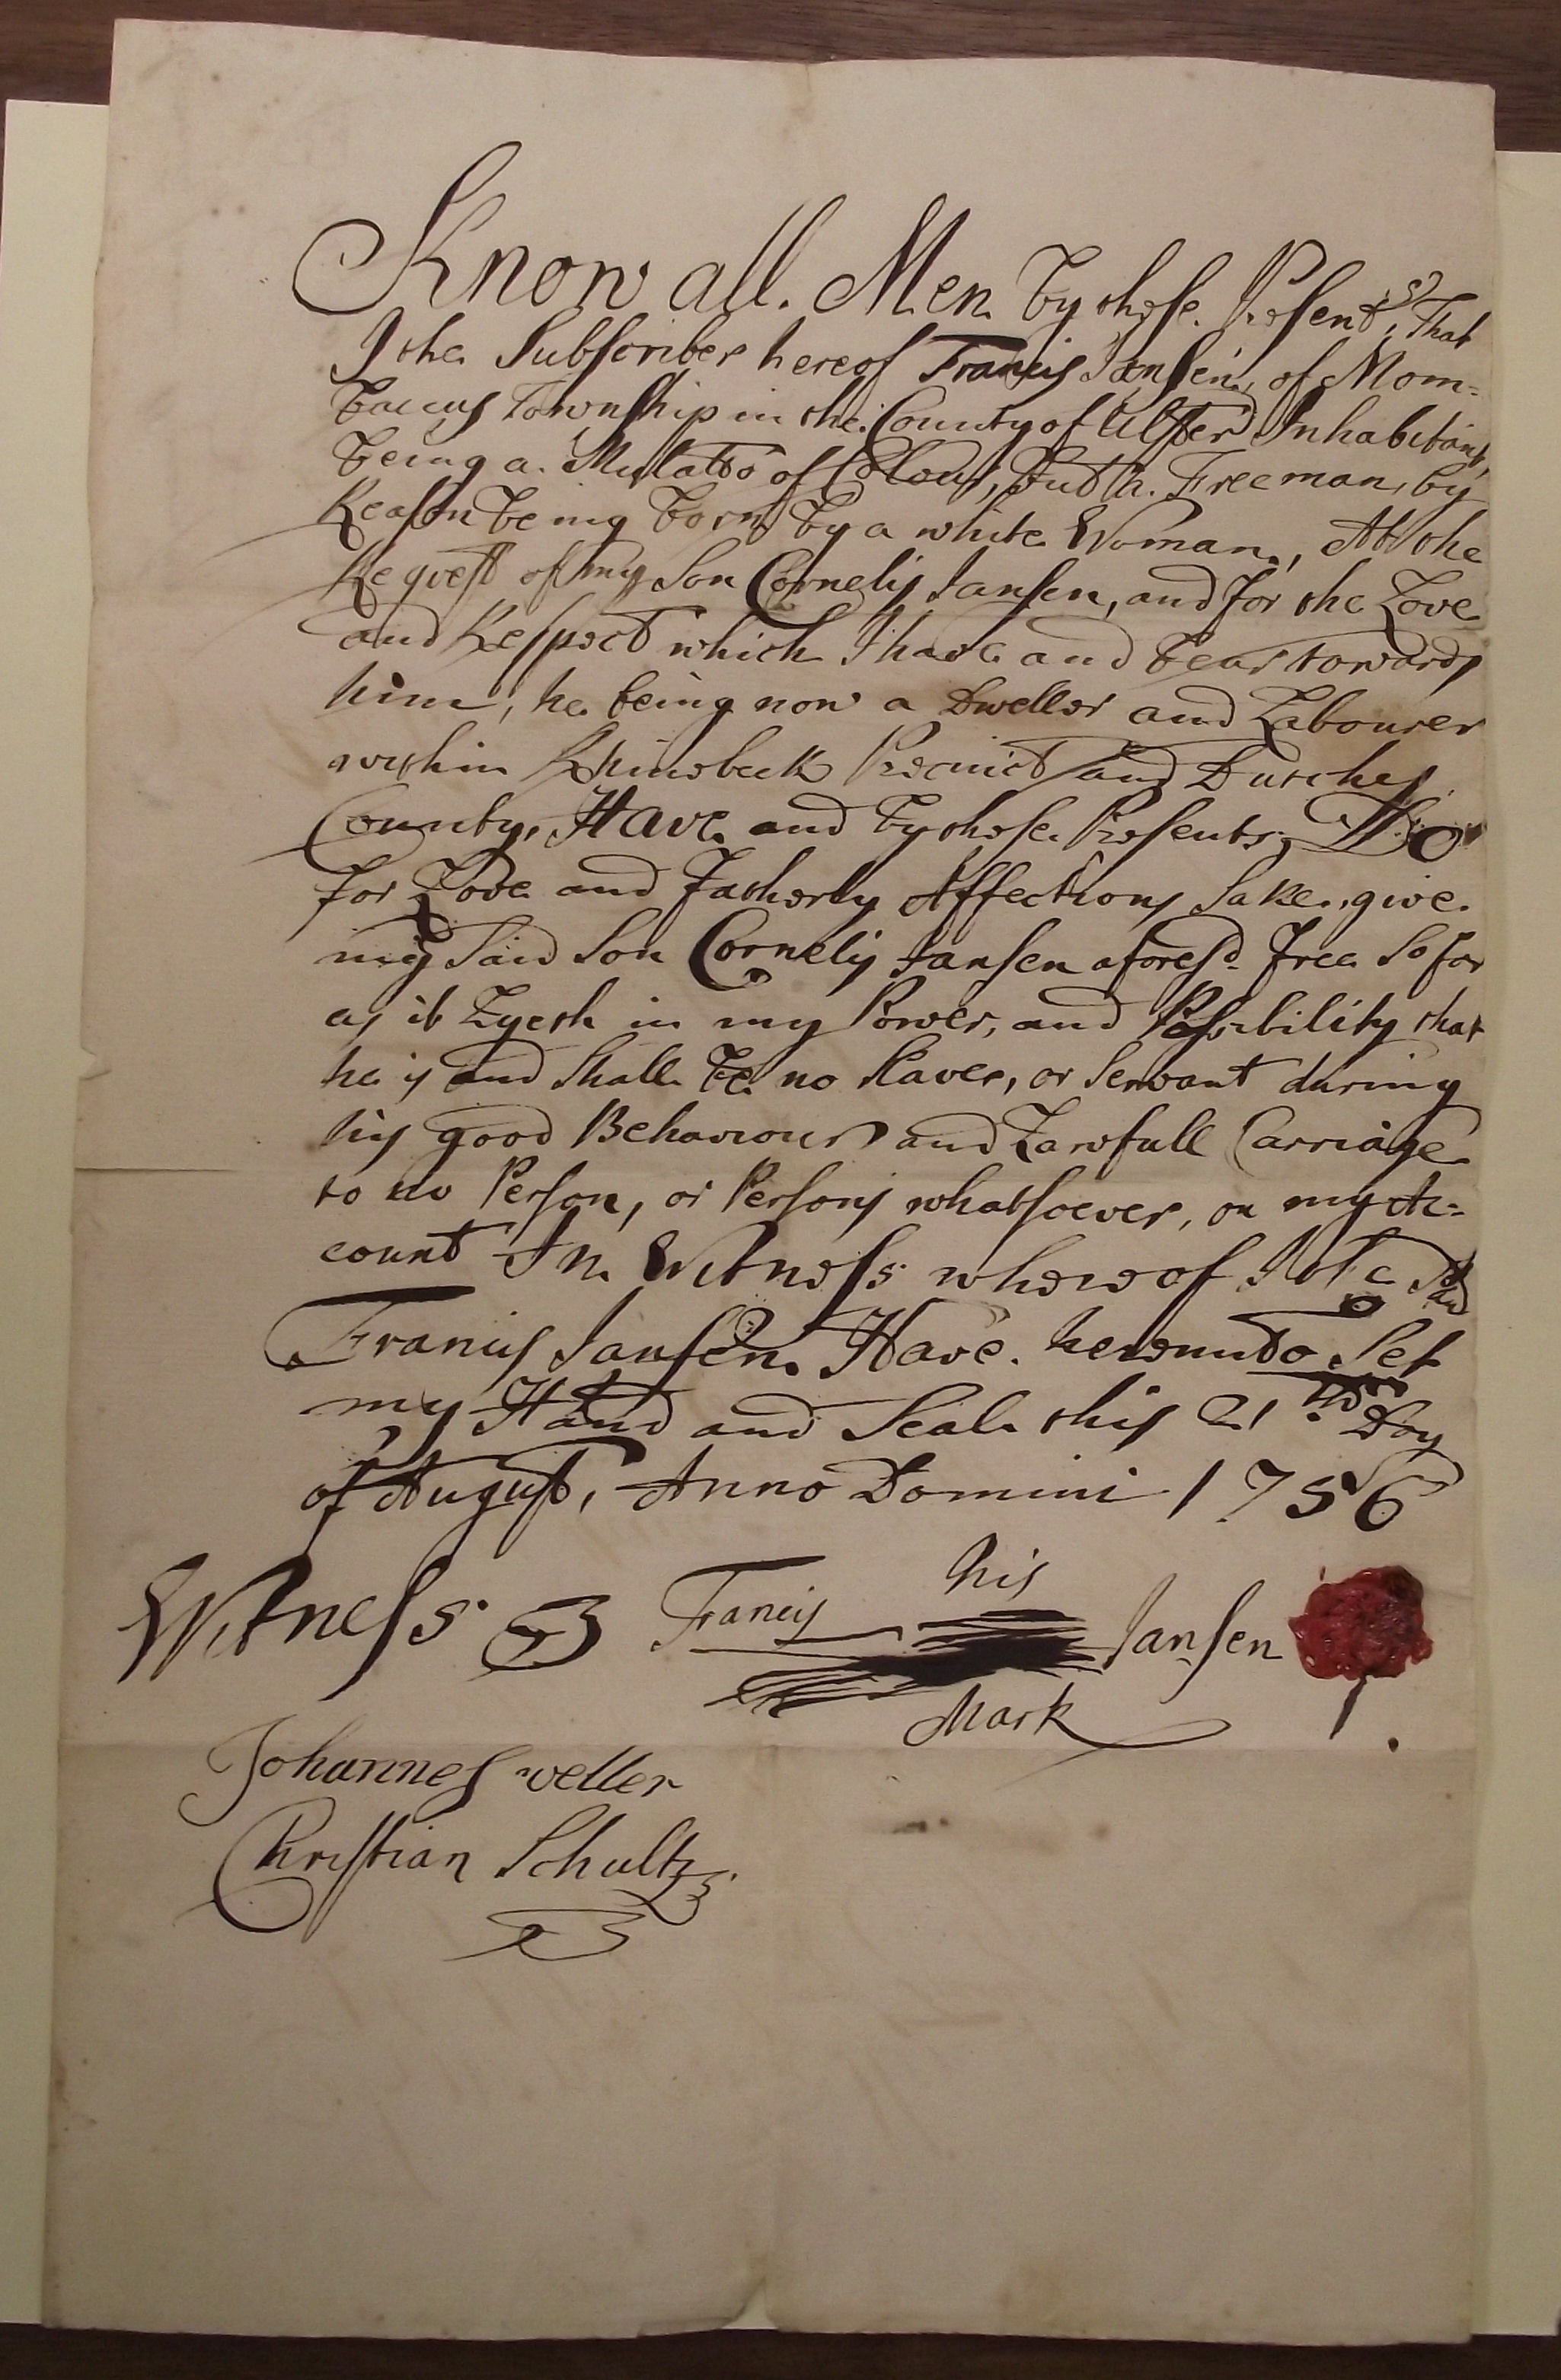 Know all Men by these Presents, That
I the Subscriber hereof Francis Jansen, of Mom=
baccus Township in the County of Ulster Inhabitant,
being a Mulatto of Colour, but a Freeman, by
Reason being born by a white Woman, At the
Request of my Son Cornelis Jansen, and for the Love
and Respect which I have and bear towards
him, he being now a Dweller and Labourer
within Rhinebeck Precinct and Dutches
County, Have and by these Presents, Do
for Love and Fatherly Affections Sake, give
my Said Son Cornelis Jansen aforesd. free So far
as it Lyeth in my Power, and Possibility that
he is and Shall be no Slaver, or Servant during
his good Behaviour and Lawfull Carriage
to no Person, or Persons whatsoever, on my Ac=
count In Witness whereof I the Said
Francis Jansen Have hereunto Set
my Hand and Seal this 21th Day
of August, Anno Domini 1756
Witness his
Francis Jansen
Mark
Johannes weller
Christian Schultz